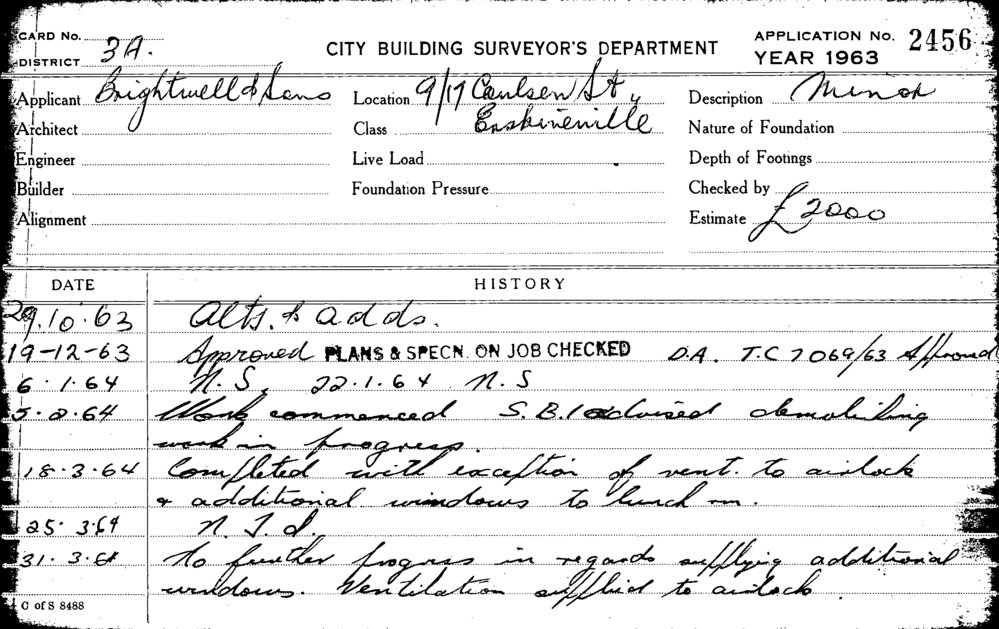 CARD No.
DISTRICT 3A.
CITY BUILDING SURVEYOR'S DEPARTMENT
APPLICATION No. 2456
YEAR 1963
Applicant Brightwell & Sons
Location 9/17 Coulson St.,
Description Minor
Architect
Class Erskineville
Nature of Foundation
Engineer
Live Load
Depth of Footings
Builder
Foundation Pressure
Checked by
Alignment
Estimate £2000
DATE HISTORY
29.10.63 Alts. & adds.
19-12-63 Approved PLANS & SPECN. ON JOB CHECKED D.A. T.C 7069/63 Approved
6.1.64 N.S. 22.1.64 N.S
5.2.64 Work commenced S.B.I advised demolishing
work in progress.
18.3.64 Completed with exception of vent. to airlock
& additional windows to lunch rm.
25.3.64
31.3.64 No further progress in regards supplying additional
windows. Ventilation supplied to airlock.
C of S 8488